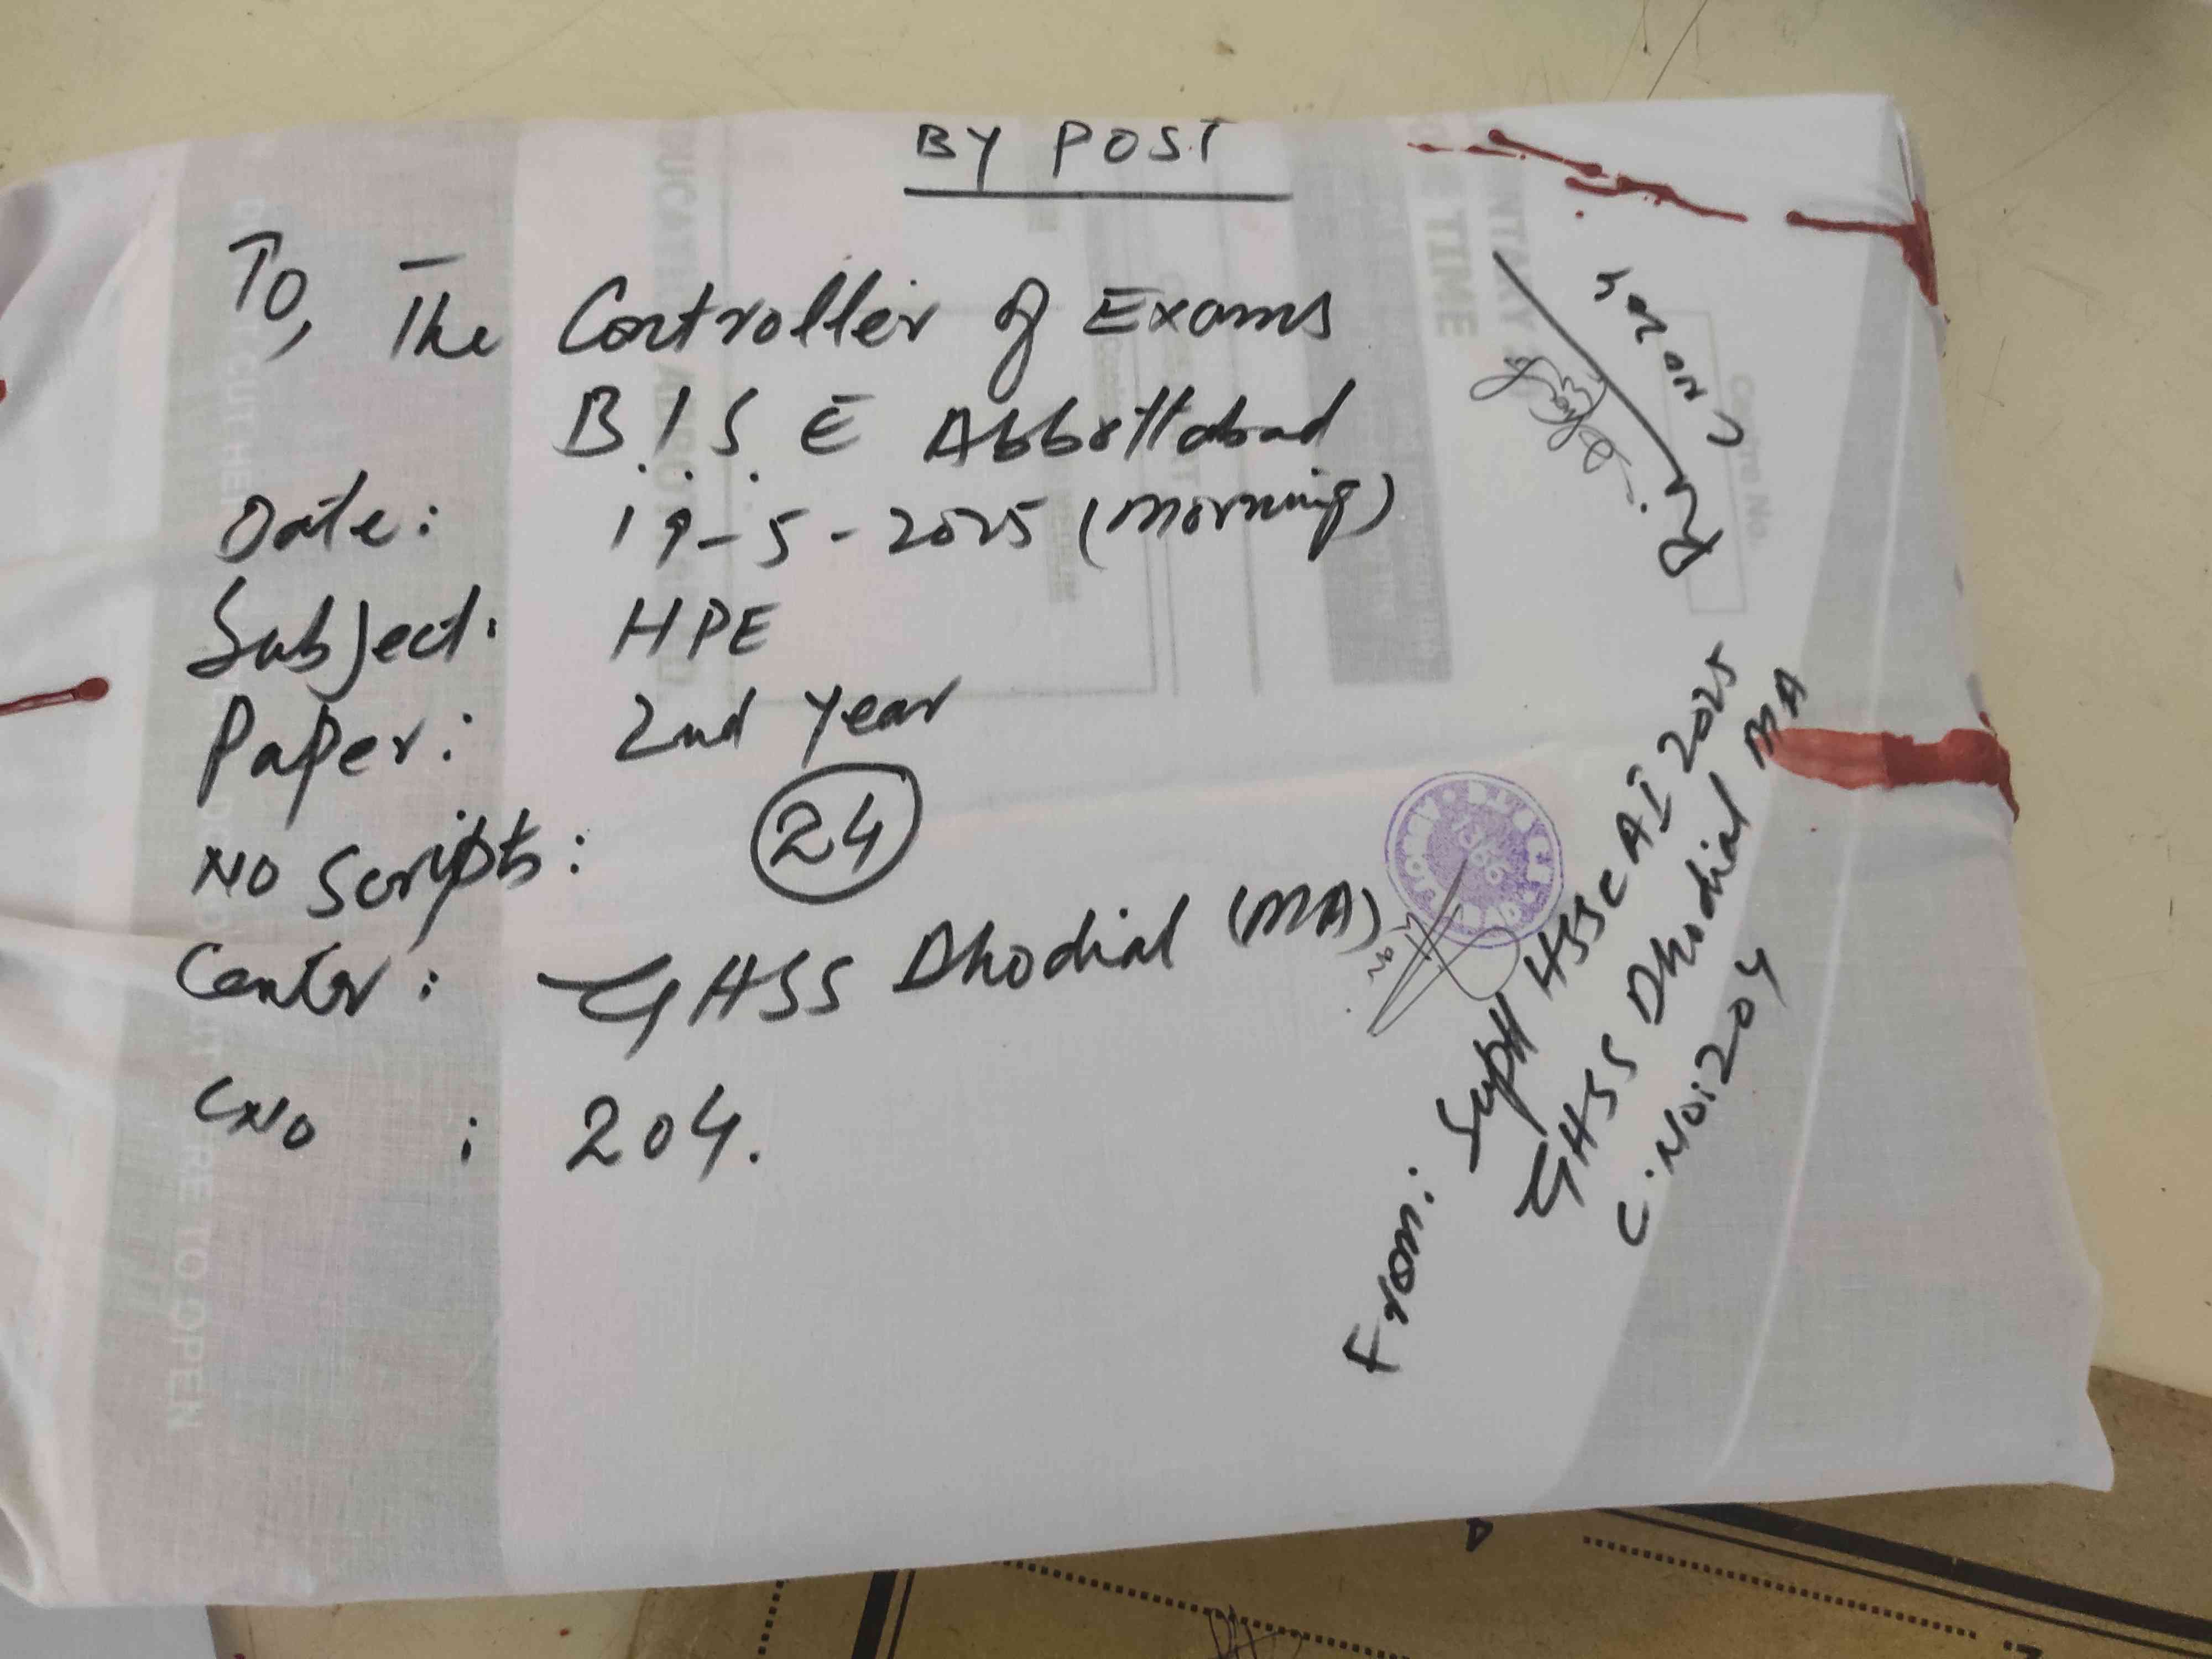 BY POST
To, The Controller of Exams
B.I.S.E Abbottabad
Date: 19-5-2025 (Morning)
Subject: HPE
Paper: 2nd Year
NO Scripts: 24
Center: GHSS Dhodial (MA)
CNO : 204.
From: Supdt HSSC AI 2025
GHSS Dhodial MA
C.No: 204